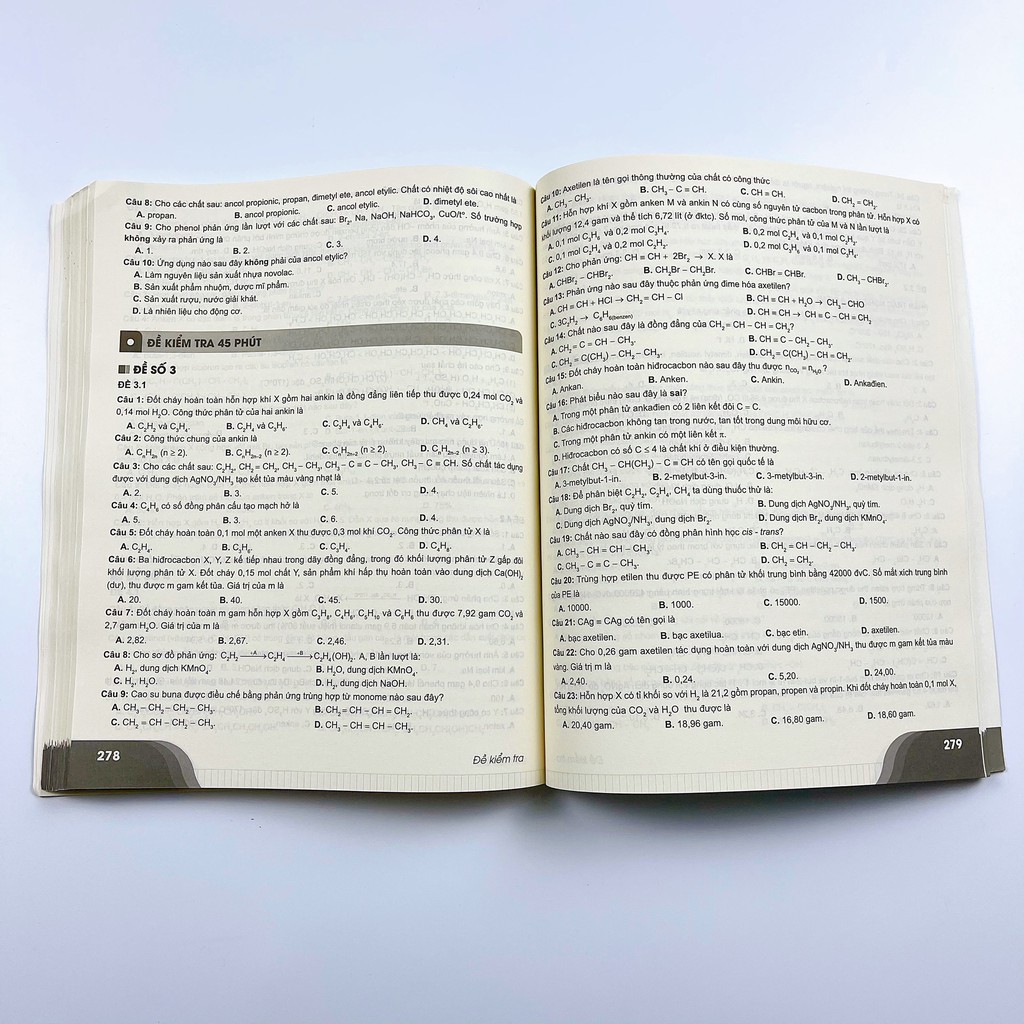 Câu 8: Cho các chất sau: ancol propionic, propan, dimetyl ete, ancol etylic. Chất có nhiệt độ sôi cao nhất là
A. propan. B. ancol propionic. C. ancol etylic. D. dimetyl ete.
Câu 9: Cho phenol phản ứng lần lượt với các chất sau: Br₂, Na, NaOH, NaHCO₃, CuO/tº. Số trường hợp
không xảy ra phản ứng là
A. 1. B. 2. C. 3. D. 4.
Câu 10: Ứng dụng nào sau đây không phải của ancol etylic?
A. Làm nguyên liệu sản xuất nhựa novolac.
B. Sản xuất phẩm nhuộm, dược mĩ phẩm.
C. Sản xuất rượu, nước giải khát.
D. Là nhiên liệu cho động cơ.
ĐỀ KIỂM TRA 45 PHÚT
ĐỀ SỐ 3
ĐỀ 3.1
Câu 1: Đốt cháy hoàn toàn hỗn hợp khí X gồm hai ankin là đồng đẳng liên tiếp thu được 0,24 mol CO₂ và
0,14 mol H₂O. Công thức phân tử của hai ankin là
A. C₂H₂ và C₃H₄. B. C₂H₄ và C₃H₆. C. C₃H₄ và C₄H₆. D. CH₄ và C₂H₆.
Câu 2: Công thức chung của ankin là
A. CₙH₂ₙ (n ≥ 2). B. CₙH₂ₙ₋₂ (n ≥ 2). C. CₙH₂ₙ₋₂ (n ≥ 2). D. CₙH₂ₙ₋₂ (n ≥ 3).
Câu 3: Cho các chất sau: C₂H₂, CH₂ = CH₂, CH₃ – CH₃, CH₃ – C ≡ C – CH₃, CH₃ – C ≡ CH. Số chất tác dụng
được với dung dịch AgNO₃/NH₃ tạo kết tủa màu vàng nhạt là
A. 2. B. 3. C. 5. D. 4.
Câu 4: C₄H₆ có số đồng phân cấu tạo mạch hở là
A. 5. B. 3. C. 6. D. 4.
Câu 5: Đốt cháy hoàn toàn 0,1 mol một anken X thu được 0,3 mol khí CO₂. Công thức phân tử X là
A. C₂H₄. B. C₃H₆. C. C₃H₄. D. C₄H₈.
Câu 6: Ba hiđrocacbon X, Y, Z kế tiếp nhau trong dãy đồng đẳng, trong đó khối lượng phân tử Z gấp đôi
khối lượng phân tử X. Đốt cháy 0,15 mol chất Y, sản phẩm khí hấp thụ hoàn toàn vào dung dịch Ca(OH)₂
(dư), thu được m gam kết tủa. Giá trị của m là
A. 20. B. 40. C. 45. D. 30.
Câu 7: Đốt cháy hoàn toàn m gam hỗn hợp X gồm C₃H₈, C₄H₆, C₅H₁₀ và C₆H₆ thu được 7,92 gam CO₂ và
2,7 gam H₂O. Giá trị của m là
A. 2,82. B. 2,67. C. 2,46. D. 2,31.
Câu 8: Cho sơ đồ phản ứng: C₂H₂ +A→ C₂H₄ +B→ C₂H₄(OH)₂. A, B lần lượt là:
A. H₂, dung dịch KMnO₄. B. H₂O, dung dịch KMnO₄.
C. H₂, H₂O. D. H₂, dung dịch NaOH.
Câu 9: Cao su buna được điều chế bằng phản ứng trùng hợp từ monome nào sau đây?
A. CH₃ – CH₂ – CH₂ – CH₃. B. CH₂ = CH – CH = CH₂.
C. CH₂ = CH – CH₂ – CH₃. D. CH₃ – CH = CH – CH₃.
278
Đề kiểm tra
Câu 10: Axetilen là tên gọi thông thường của chất có công thức
A. CH₃ – CH₃. B. CH₃ – C ≡ CH. C. CH ≡ CH. D. CH₂ = CH₂.
Câu 11: Hỗn hợp khí X gồm anken M và ankin N có cùng số nguyên tử cacbon trong phân tử. Hỗn hợp X có
khối lượng 12,4 gam và thể tích 6,72 lít (ở đktc). Số mol, công thức phân tử của M và N lần lượt là
A. 0,1 mol C₃H₆ và 0,2 mol C₃H₄. B. 0,2 mol C₂H₄ và 0,1 mol C₂H₂.
C. 0,1 mol C₂H₄ và 0,2 mol C₂H₂. D. 0,2 mol C₃H₆ và 0,1 mol C₃H₄.
Câu 12: Cho phản ứng: CH ≡ CH + 2Br₂ → X. X là
A. CHBr₂ – CHBr₂. B. CH₂Br – CH₂Br. C. CHBr = CHBr. D. CH₃ – CHBr₂.
Câu 13: Phản ứng nào sau đây thuộc phản ứng đime hóa axetilen?
A. CH ≡ CH + HCl → CH₂ = CH – Cl B. CH ≡ CH + H₂O → CH₃ – CHO
C. 3C₂H₂ → C₆H₆(benzen) D. CH ≡ CH → CH ≡ C – CH = CH₂
Câu 14: Chất nào sau đây là đồng đẳng của CH₂ = CH – CH = CH₂?
A. CH₂ = C = CH – CH₃. B. CH ≡ C – CH₂ – CH₃.
C. CH₂ = C(CH₃) – CH₂ – CH₃. D. CH₂ = C(CH₃) – CH = CH₂.
Câu 15: Đốt cháy hoàn toàn hiđrocacbon nào sau đây thu được n CO₂ = n H₂O?
A. Ankan. B. Anken. C. Ankin. D. Ankađien.
Câu 16: Phát biểu nào sau đây là sai?
A. Trong một phân tử ankađien có 2 liên kết đôi C = C.
B. Các hiđrocacbon không tan trong nước, tan tốt trong dung môi hữu cơ.
C. Trong một phân tử ankin có một liên kết π.
D. Hiđrocacbon có số C ≤ 4 là chất khí ở điều kiện thường.
Câu 17: Chất CH₃ – CH(CH₃) – C ≡ CH có tên gọi quốc tế là
A. 3-metylbut-1-in. B. 2-metylbut-3-in. C. 3-metylbut-3-in. D. 2-metylbut-1-in.
Câu 18: Để phân biệt C₂H₂, C₂H₄, CH₄ ta dùng thuốc thử là:
A. Dung dịch Br₂, quỳ tím. B. Dung dịch AgNO₃/NH₃, quỳ tím.
C. Dung dịch AgNO₃/NH₃, dung dịch Br₂. D. Dung dịch Br₂, dung dịch KMnO₄.
Câu 19: Chất nào sau đây có đồng phân hình học cis - trans?
A. CH₃ – CH = CH – CH₃. B. CH₂ = CH – CH₂ – CH₃.
C. CH₃ – C ≡ C – CH₃. D. CH₂ = CH₂.
Câu 20: Trùng hợp etilen thu được PE có phân tử khối trung bình bằng 42000 đvC. Số mắt xích trung bình
của PE là
A. 10000. B. 1000. C. 15000. D. 1500.
Câu 21: CAg ≡ CAg có tên gọi là
A. bạc axetilen. B. bạc axetilua. C. bạc etin. D. axetilen.
Câu 22: Cho 0,26 gam axetilen tác dụng hoàn toàn với dung dịch AgNO₃/NH₃ thu được m gam kết tủa màu
vàng. Giá trị m là
A. 2,40. B. 0,24. C. 5,20. D. 24,00.
Câu 23: Hỗn hợp X có tỉ khối so với H₂ là 21,2 gồm propan, propen và propin. Khi đốt cháy hoàn toàn 0,1 mol X,
tổng khối lượng của CO₂ và H₂O thu được là
A. 20,40 gam. B. 18,96 gam. C. 16,80 gam. D. 18,60 gam.
279